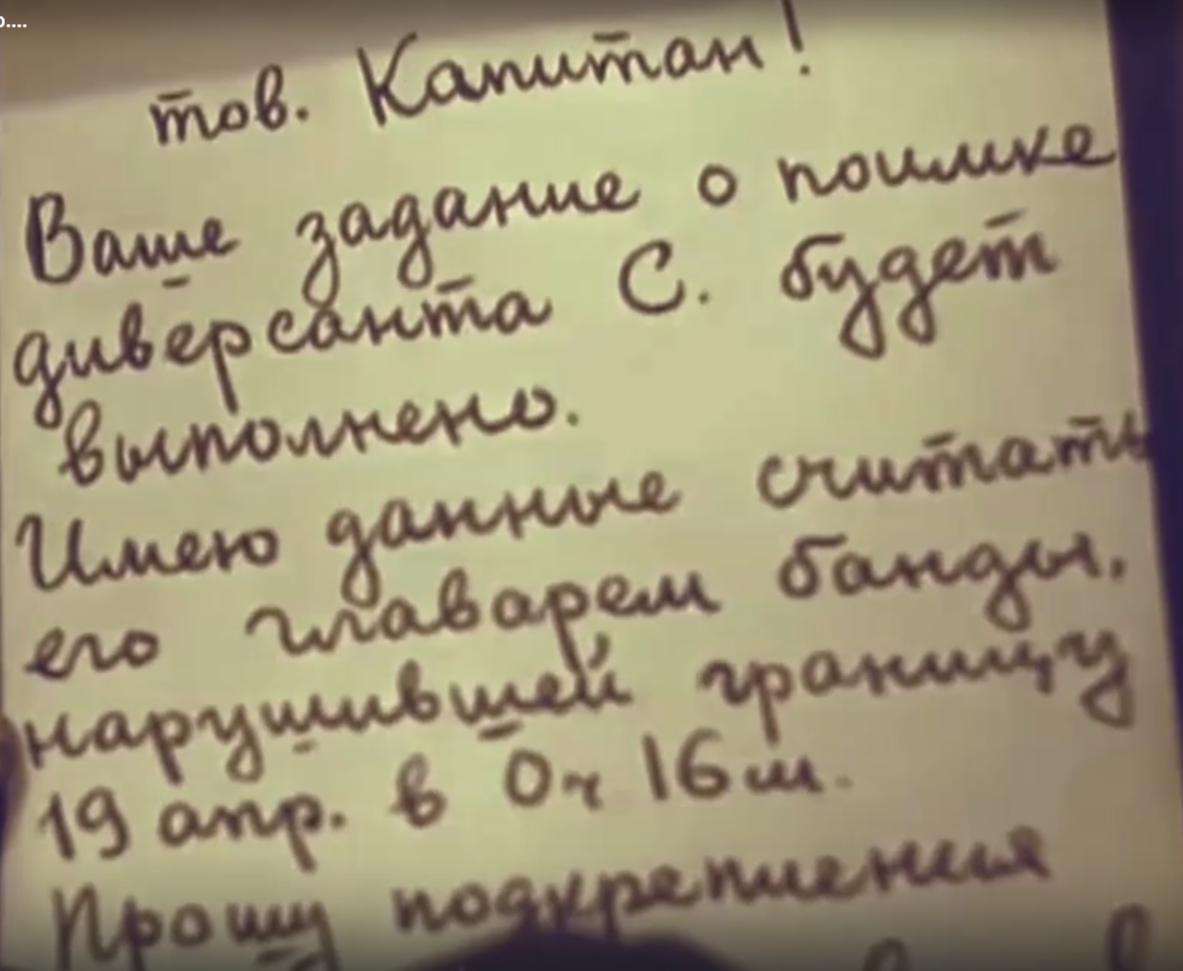 тов. Капитан!
Ваше задание о поимке
диверсанта С. будет
выполнено.
Имею данные считать
его главарем банды,
нарушившей границу
19 апр. в 0ч 16м.
Прошу подкрепления